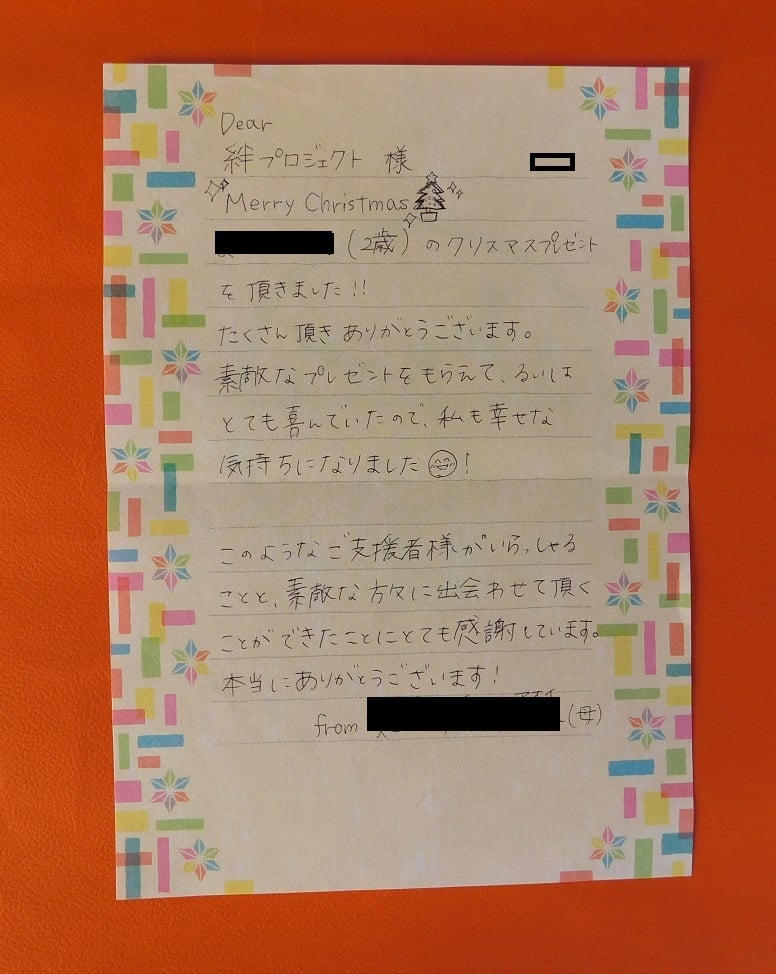 Dear
絆プロジェクト 様
Merry Christmas
(2歳)のクリスマスプレゼント
を頂きました!!
たくさん頂きありがとうございます。
素敵なプレゼントをもらえて、るいは
とても喜んでいたので、私も幸せな
気持ちになりました!
このようなご支援者様がいらっしゃる
ことと、素敵な方々に出会わせて頂く
ことができたことにとても感謝しています。
本当にありがとうございます!
from (母)